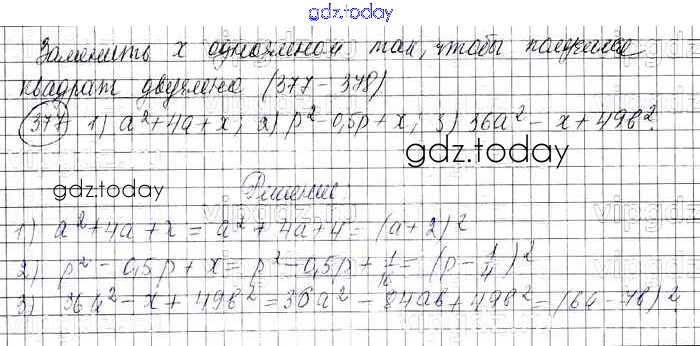 gdz.today
Заменить x одночленом так, чтобы получился
квадрат двучлена (377 - 378)
377 1) a²+4a+x; 2) p²-0,5p+x; 3) 36a²-x+49b².
gdz.today
gdz.today
Решение
1) a²+4a+x = a²+4a+4 = (a+2)²
2) p²-0,5p+x = p²-0,5p+1/16 = (p-1/4)²
3) 36a²-x+49b² = 36a²-84ab+49b² = (6a-7b)²